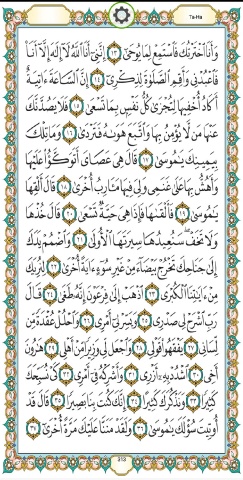 Ta-Ha
وَأَنَا ٱخْتَرْتُكَ فَٱسْتَمِعْ لِمَا يُوحَىٰٓ ١٣ إِنَّنِىٓ أَنَا ٱللَّهُ لَآ إِلَٰهَ إِلَّآ أَنَا۠
فَٱعْبُدْنِى وَأَقِمِ ٱلصَّلَوٰةَ لِذِكْرِىٓ ١٤ إِنَّ ٱلسَّاعَةَ ءَاتِيَةٌ
أَكَادُ أُخْفِيهَا لِتُجْزَىٰ كُلُّ نَفْسٍۭ بِمَا تَسْعَىٰ ١٥ فَلَا يَصُدَّنَّكَ
عَنْهَا مَن لَّا يُؤْمِنُ بِهَا وَٱتَّبَعَ هَوَىٰهُ فَتَرْدَىٰ ١٦ وَمَا تِلْكَ
بِيَمِينِكَ يَٰمُوسَىٰ ١٧ قَالَ هِىَ عَصَاىَ أَتَوَكَّؤُا۟ عَلَيْهَا
وَأَهُشُّ بِهَا عَلَىٰ غَنَمِى وَلِىَ فِيهَا مَـَٔارِبُ أُخْرَىٰ ١٨ قَالَ أَلْقِهَا
يَٰمُوسَىٰ ١٩ فَأَلْقَىٰهَا فَإِذَا هِىَ حَيَّةٌ تَسْعَىٰ ٢٠ قَالَ خُذْهَا
وَلَا تَخَفْ ۖ سَنُعِيدُهَا سِيرَتَهَا ٱلْأُولَىٰ ٢١ وَٱضْمُمْ يَدَكَ
إِلَىٰ جَنَاحِكَ تَخْرُجْ بَيْضَآءَ مِنْ غَيْرِ سُوٓءٍ ءَايَةً أُخْرَىٰ ٢٢ لِنُرِيَكَ
مِنْ ءَايَٰتِنَا ٱلْكُبْرَى ٢٣ ٱذْهَبْ إِلَىٰ فِرْعَوْنَ إِنَّهُۥ طَغَىٰ ٢٤ قَالَ
رَبِّ ٱشْرَحْ لِى صَدْرِى ٢٥ وَيَسِّرْ لِىٓ أَمْرِى ٢٦ وَٱحْلُلْ عُقْدَةً مِّن
لِّسَانِى ٢٧ يَفْقَهُوا۟ قَوْلِى ٢٨ وَٱجْعَل لِّى وَزِيرًا مِّنْ أَهْلِى ٢٩ هَٰرُونَ
أَخِى ٣٠ ٱشْدُدْ بِهِۦٓ أَزْرِى ٣١ وَأَشْرِكْهُ فِىٓ أَمْرِى ٣٢ كَىْ نُسَبِّحَكَ
كَثِيرًا ٣٣ وَنَذْكُرَكَ كَثِيرًا ٣٤ إِنَّكَ كُنتَ بِنَا بَصِيرًا ٣٥ قَالَ قَدْ
أُوتِيتَ سُؤْلَكَ يَٰمُوسَىٰ ٣٦ وَلَقَدْ مَنَنَّا عَلَيْكَ مَرَّةً أُخْرَىٰٓ ٣٧
313